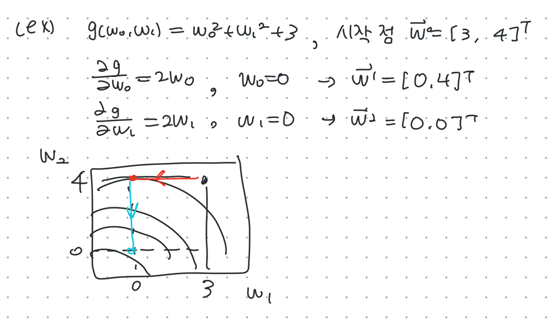 (ex) g(w₀,w₁) = w₀²+w₁²+3 , 시작 점 w⃗⁰=[3, 4]ᵀ
∂g/∂w₀ = 2w₀ , w₀=0 → w⃗¹=[0.4]ᵀ
∂g/∂w₁ = 2w₁ , w₁=0 → w⃗²=[0.0]ᵀ
w₂
4
0
0 3 w₁